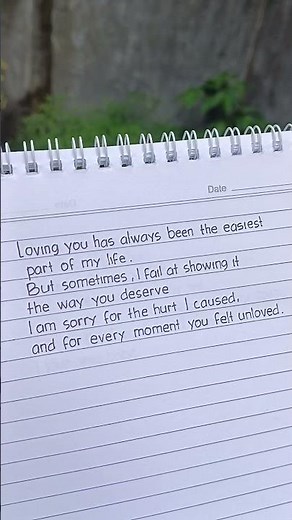 Date
Loving you has always been the easiest
part of my life.
But sometimes, I fail at showing it
the way you deserve
I am sorry for the hurt I caused,
and for every moment you felt unloved.